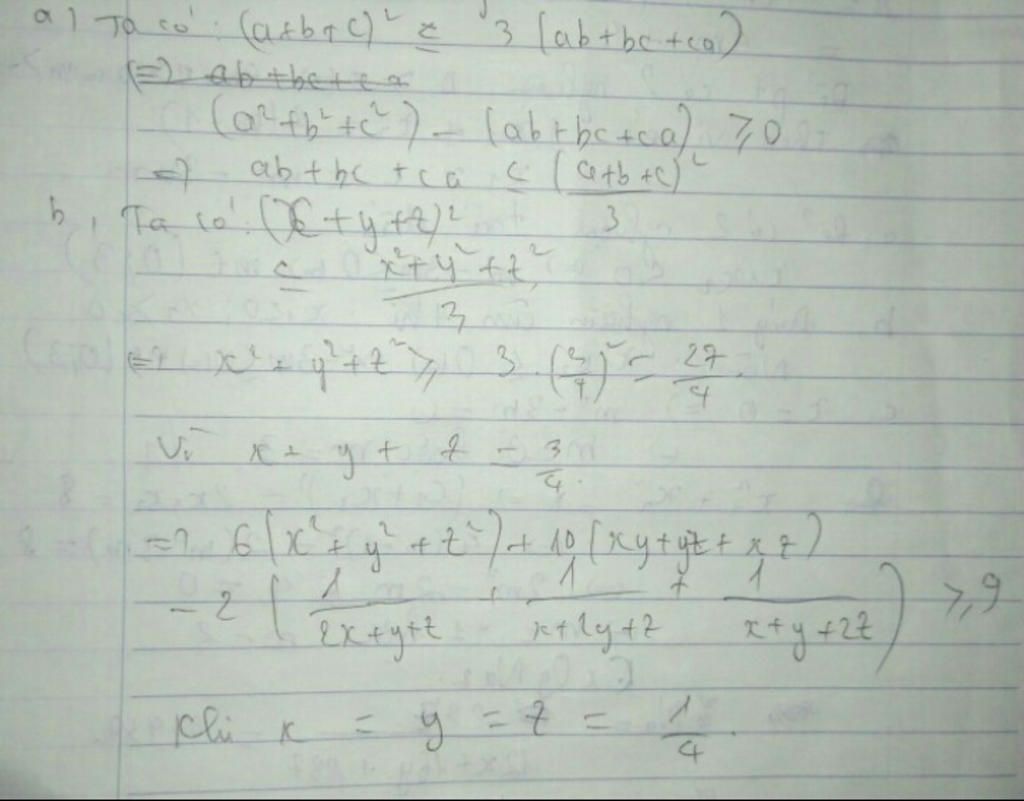 a) Ta có: (a+b+c)² ≤ 3 (ab+bc+ca)
(=) ab+bc+ca
(a²+b²+c²) - (ab+bc+ca) ⩾ 0
=) ab+bc+ca ≤ (a+b+c)²/3
b, Ta có: (x+y+z)²
≤ x²+y²+z²/3
=) x²+y²+z² ⩾ 3.(3/4)² = 27/4.
Vì x+y+z = 3/4.
=) 6(x²+y²+z²)+10(xy+yz+xz)
-2(1/2x+y+z + 1/x+2y+z + 1/x+y+2z) ⩾ 9
Khi x = y = z = 1/4.